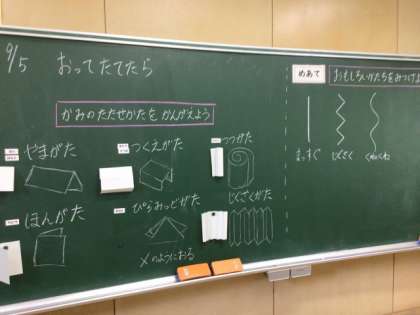 9/5 おってたてたら
かみのたたせかたを かんがえよう
やまがた
つくえがた
つつがた
ほんがた
ぴらみっどがた
じぐざぐがた
メのようにおる
めあて
おもしろいかたちをみつけよ
まっすぐ
じぐざぐ
くねくね